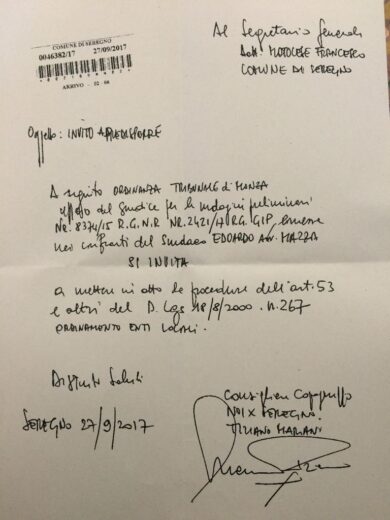 COMUNE DI SEREGNO
0046382/17 27/09/2017
ARRIVO - 02-06
Al Segretario Generale
Dott. MOTOLESE FRANCESCO
COMUNE DI SEREGNO
Oggetto: INVITO A PREDISPORRE
A seguito ORDINANZA TRIBUNALE di MONZA
ufficio del Giudice per le indagini preliminari
Nr. 8374/15 R.G.N.R NR. 2421/17 RG. GIP, emessa
nei confronti del Sindaco EDOARDO MAZZA
SI INVITA
a mettere in atto le procedure dell'art. 53
e altri del D. Lgs 18/8/2000 . n. 267
ORDINAMENTO ENTI LOCALI.
Distinti Saluti
SEREGNO 27/9/2017
Consigliere Capogruppo
NOI X SEREGNO.
TIZIANO MARIANI